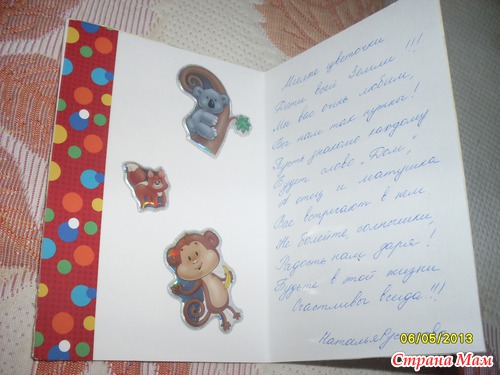 Милые цветочки
Дети всей Земли !!!
Мы вас очень любим,
Вы нам так нужны!
Пусть знакомо каждому
Будет слово „Дом",
А отец и матушка
Вас встречают в нем.
Не болейте солнышки,
Радость нам даря!
Будьте в этой жизни
Счастливы всегда!!!
Наталья
06/05/2013
Страна Мам